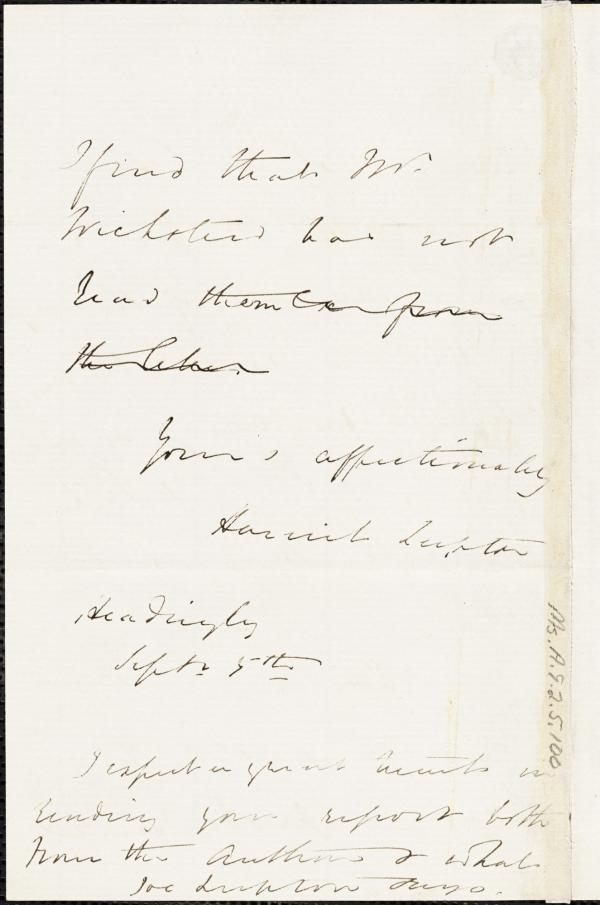 I find that Mr.
Wicksteed has not
read them
the
Your's affectionately
Harriet Lupton
Headingley
Septr 5th
I expect a great treat in
reading your report both
from the Author & what
Joe Lupton says.
Ms.A.9.2.5.100